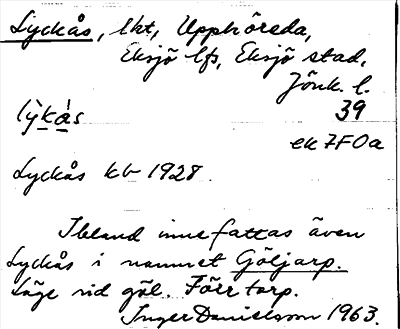 Lyckås, lht, Upphöreda,
Eksjö lfs, Eksjö stad,
Jönk. l.
lỳkás 39
ek 7F0a
Lyckås kb 1928.
Ibland innefattas även
Lyckås i namnet Göljarp.
Läge vid göl. Förr torp.
Inger Danielsson 1963.